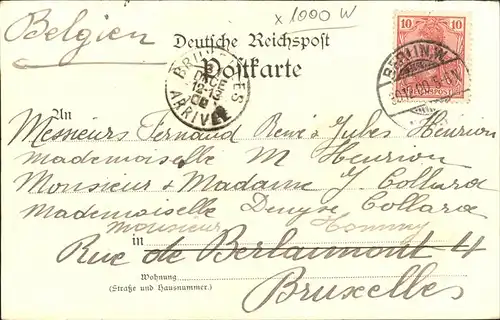 x 1000 W
Belgien
Deutsche Reichspost
Postkarte
10 10
REICHSPOST
BERLIN.W.
BRUXELLES
ARRIVÉE
An
Messieurs Fernand René & Jules Henrion
Mademoiselle M Henrion
Monsieur & Madame J. Collard
Mademoiselle Denyse Collard
Monsieur
in Rue de Berlaimont 4
Wohnung
(Straße und Hausnummer.)
Bruxelles